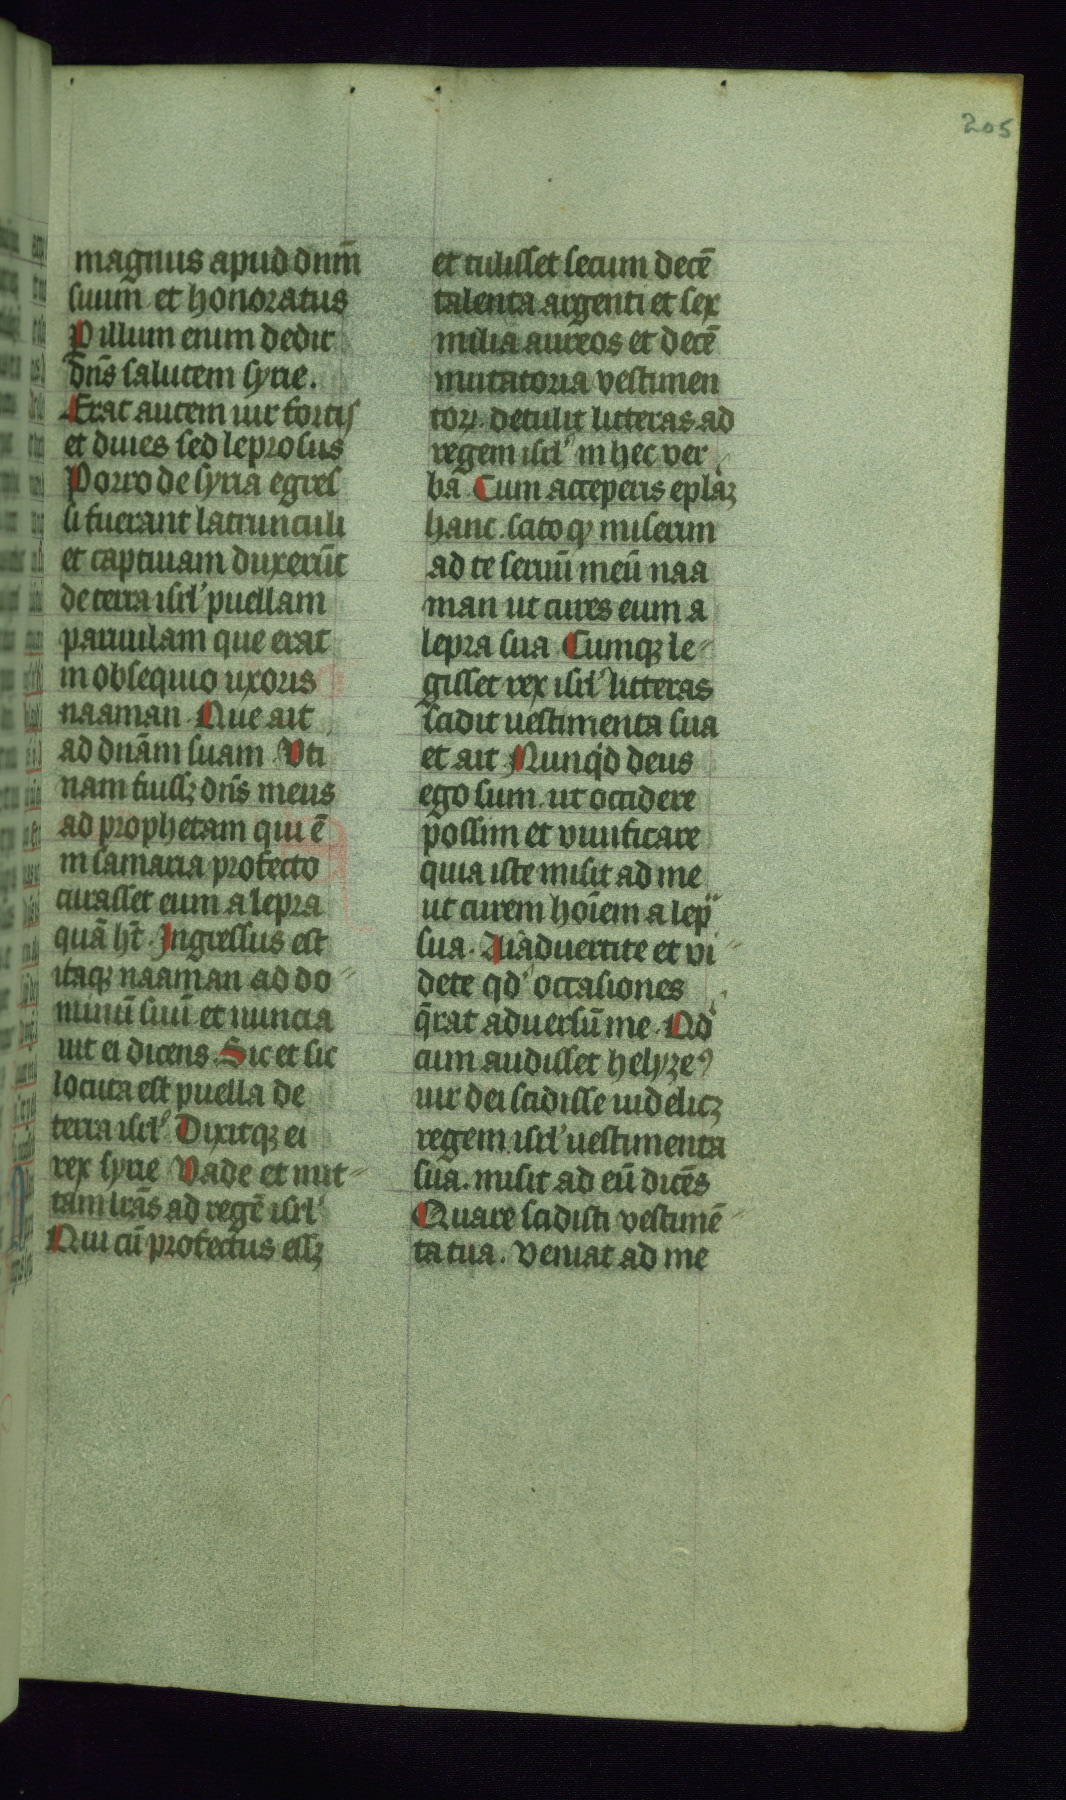 205
magnus apud dnm̄
suum et honoratus
P illum enim dedit
dn̄s salutem syrie.
Erat autem uir fortis
et diues sed leprosus
Porro de syria egres
si fuerant latrunculi
et captiuam duxerūt
de terra isrl' puellam
paruulam que erat
in obsequio uxoris
naaman. Que ait
ad dnām suam. Vti
nam fuissꝫ dn̄s meus
ad prophetam qui ē
in samaria profecto
curasset eum a lepra
quā hт̄. Ingressus est
itaqꝫ naaman ad do-
minū suū et nuncia
uit ei dicens. Sic et sic
locuta est puella de
terra isrl' Dixitqꝫ ei
rex syrie Vade et mit-
tam lr̄as ad regē isrl'
Qui cū profectus essꝫ
et tulisset secum decē
talenta argenti et sex
milia aureos et decē
mutatoria vestimen
toꝝ. detulit litteras ad
regem isrl' in hec ver
ba Cum acceperis ep̄laꝫ
hanc. scito qꝫ miserim
ad te seruū meū naa
man ut cures eum a
lepra sua Cumqꝫ le-
gisset rex isrl' litteras
scidit uestimenta sua
et ait Nunqd deus
ego sum. ut occidere
possim et viuificare
quia iste misit ad me
ut curem hoīem a lep̄
sua. Aīaduertite et vi-
dete qd' occasiones
q̄rat aduersū me. Qd'
cum audisset helyzeꝰ
uir dei scidisse uidelicꝫ
regem isrl' uestimenta
sua. misit ad eū dicēs
Quare scidisti vestimē-
ta tua. Veniat ad me